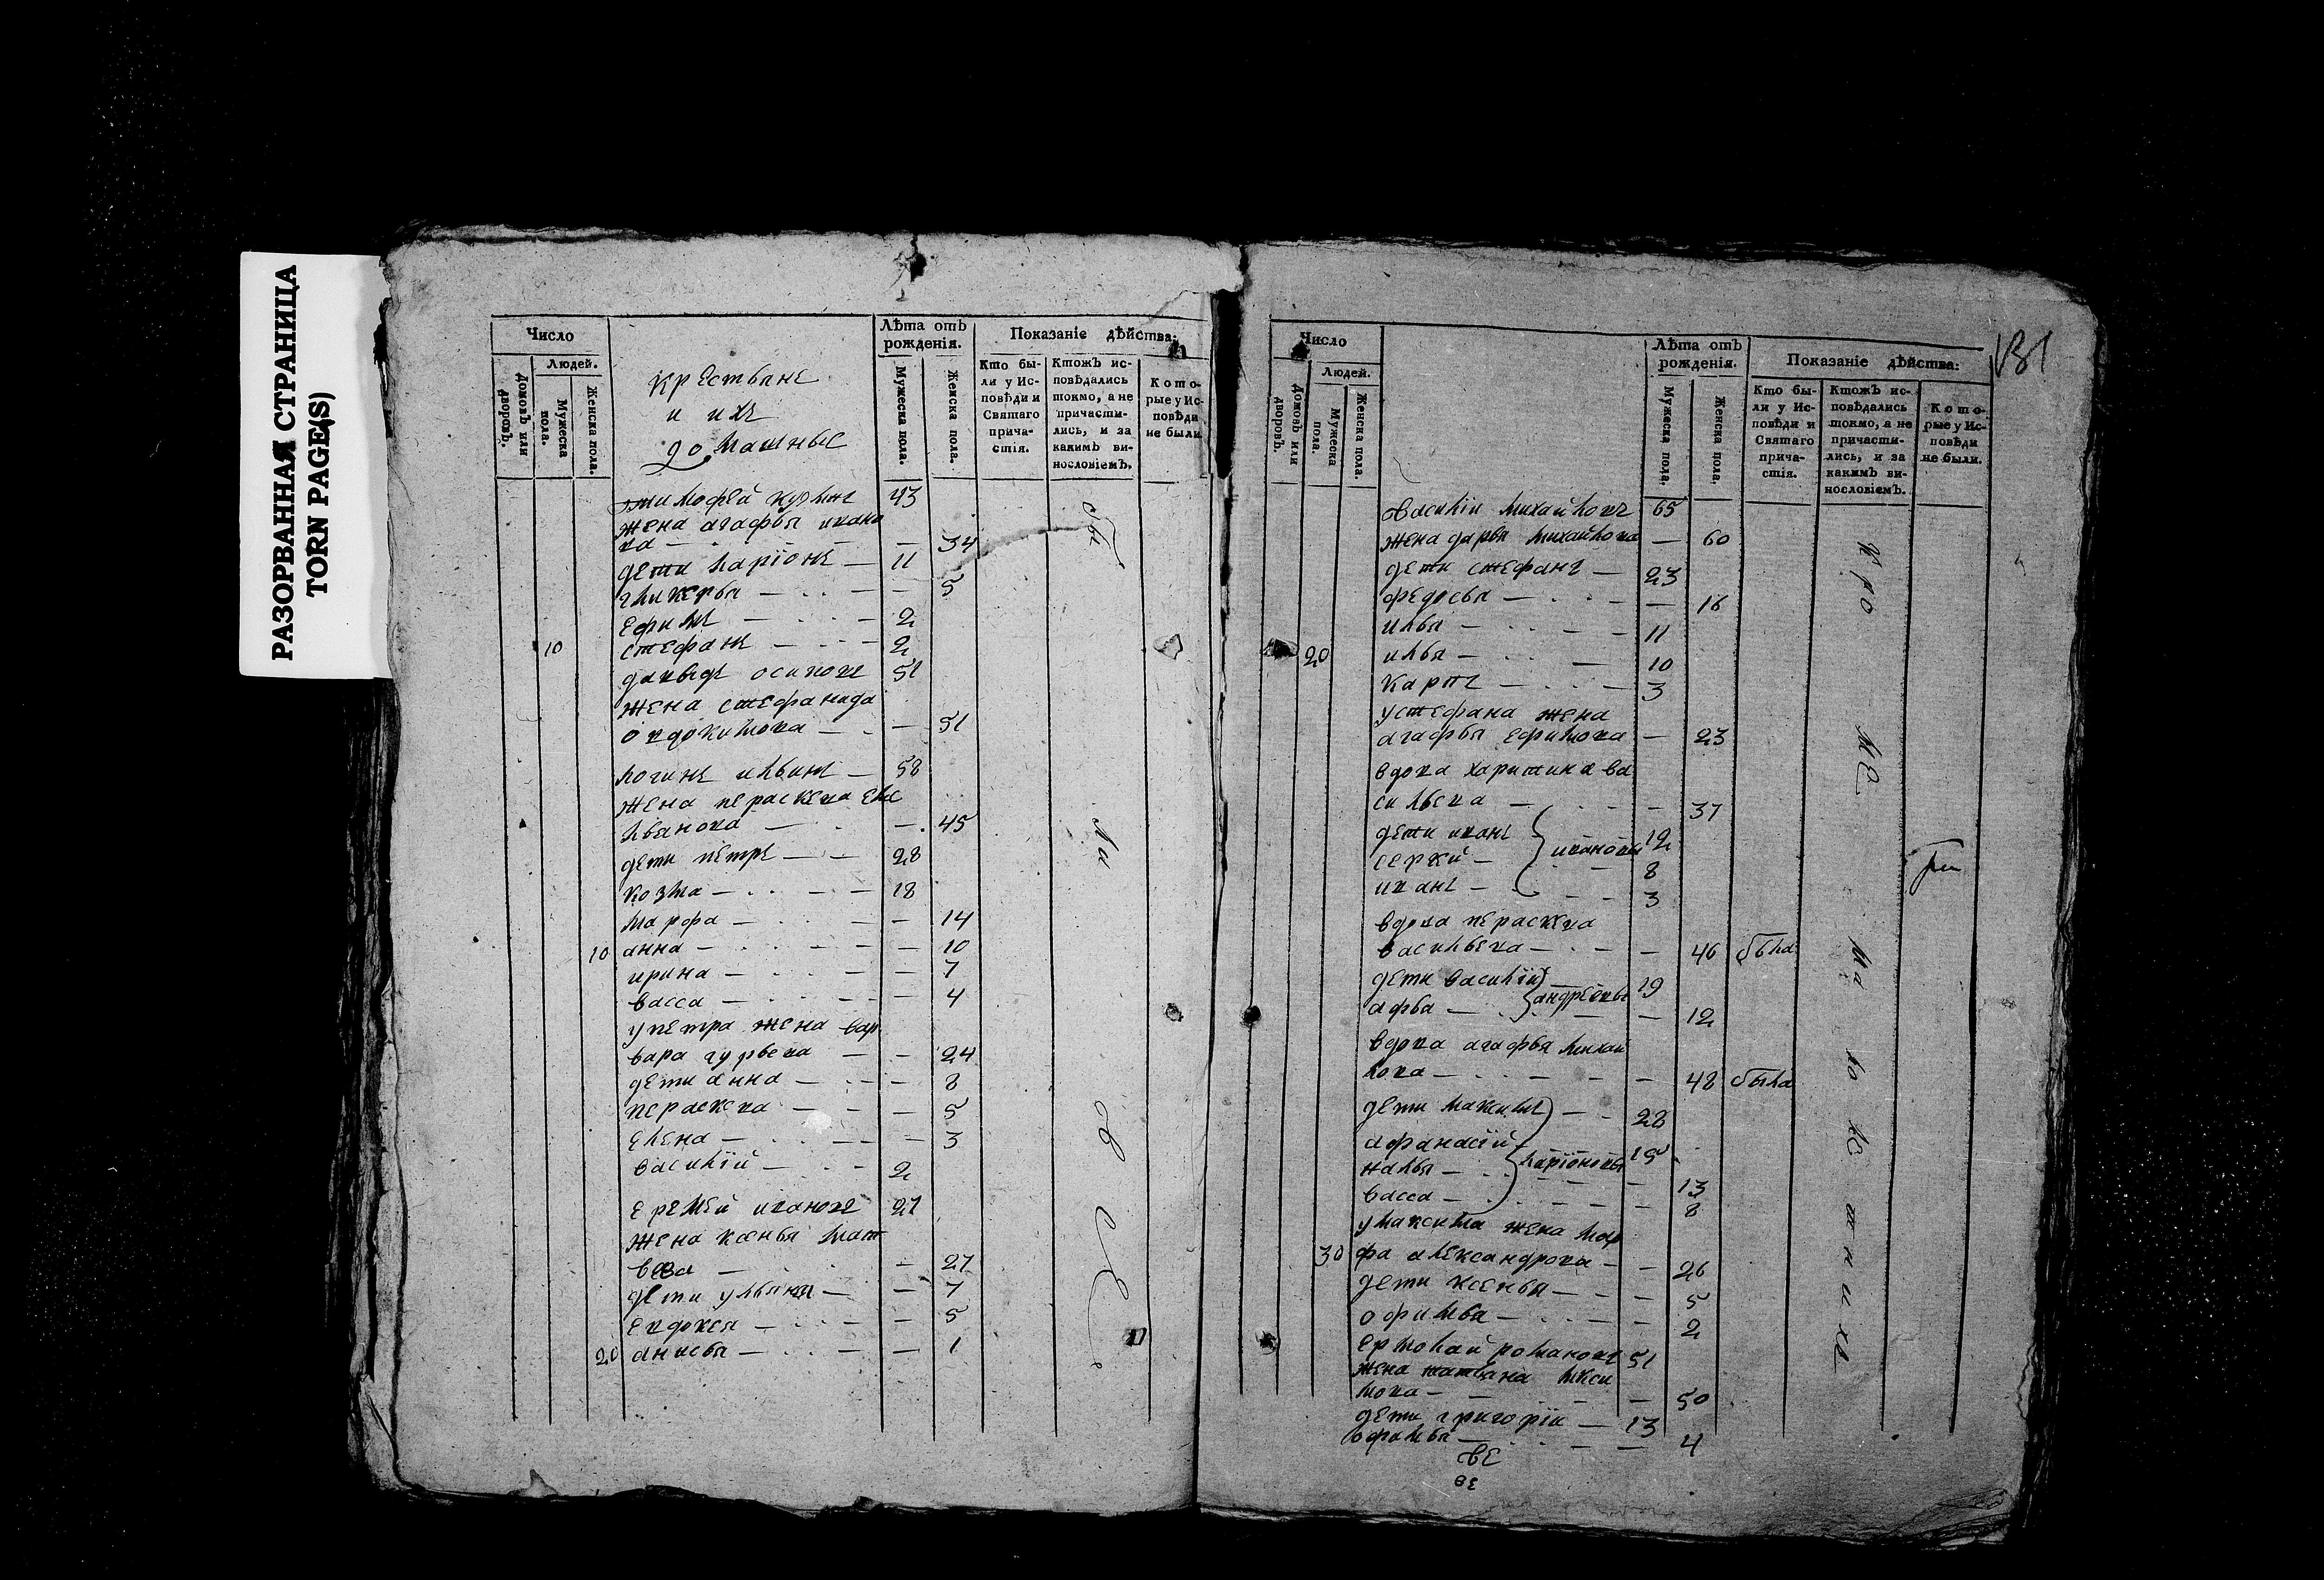 РАЗОРВАННАЯ СТРАНИЦА
TORN PAGE(S)
Число
Людей.
Домовъ или дворовъ.
Мужеска пола.
Женска пола.
крестьяне
и ихъ
домашные
Лѣта отъ рожденія.
Мужеска пола.
Женска пола.
Показаніе дѣйства:
Кто были у Исповѣди и Святаго причастія.
Ктожъ исповѣдались токмо, а не причастились, и за какимъ винословіемъ.
Которые у Исповѣди не были.
тимофей кузмич 43
жена агафья ивано
ва — 34
дети ларіонъ — 11
гликерья — 5
ефимъ — 2
10 стефанъ — 2
давыдъ осиповъ 51
жена стефанида
овдокимова — 51
логинъ ильинъ — 58
жена пераскева еме
льянова — 45
дети петръ — 28
козма — 18
марфа — 14
10 анна — 10
ирина — 7
васса — 4
у петра жена вар
вара гурьева — 24
дети анна — 8
пераскева — 5
елена — 3
василій — 2
еремей ивановъ 27
жена ксенья мат
вева — 27
дети ульяна — 7
евдокея — 5
20 анисья — 1
бы
ла
ов
се
Число
Людей.
Домовъ или дворовъ.
Мужеска пола.
Женска пола.
Лѣта отъ рожденія.
Мужеска пола.
Женска пола.
Показаніе дѣйства:
Кто были у Исповѣди и Святаго причастія.
Ктожъ исповѣдались токмо, а не причастились, и за какимъ винословіемъ.
Которые у Исповѣди не были.
131
василіи михайловъ 65
жена дарья михайлова — 60
дети стефанъ — 23
федосья — 16
илья — 11
20 илья — 10
карпъ — 3
у стефана жена
агафья ефимова — 23
вдова харитина ва
сильева — 37
дети иванъ 12
сергей — ивановы 8
иванъ — 3
вдова пераскева
васильева — 46 была
дети василій 19
афья — андреевы 12
вдова агафья михай
лова — 48 была
дети максимъ — 28
афанасій — 15
наля — ларіоновы 13
васса — 8
у максима жена мар
30 фа александрова — 26
дети ксенья — 5
офимья — 2
ермолай романовъ 51
жена татьяна макси
мова — 50
дети григоріи — 13
офимья — 4